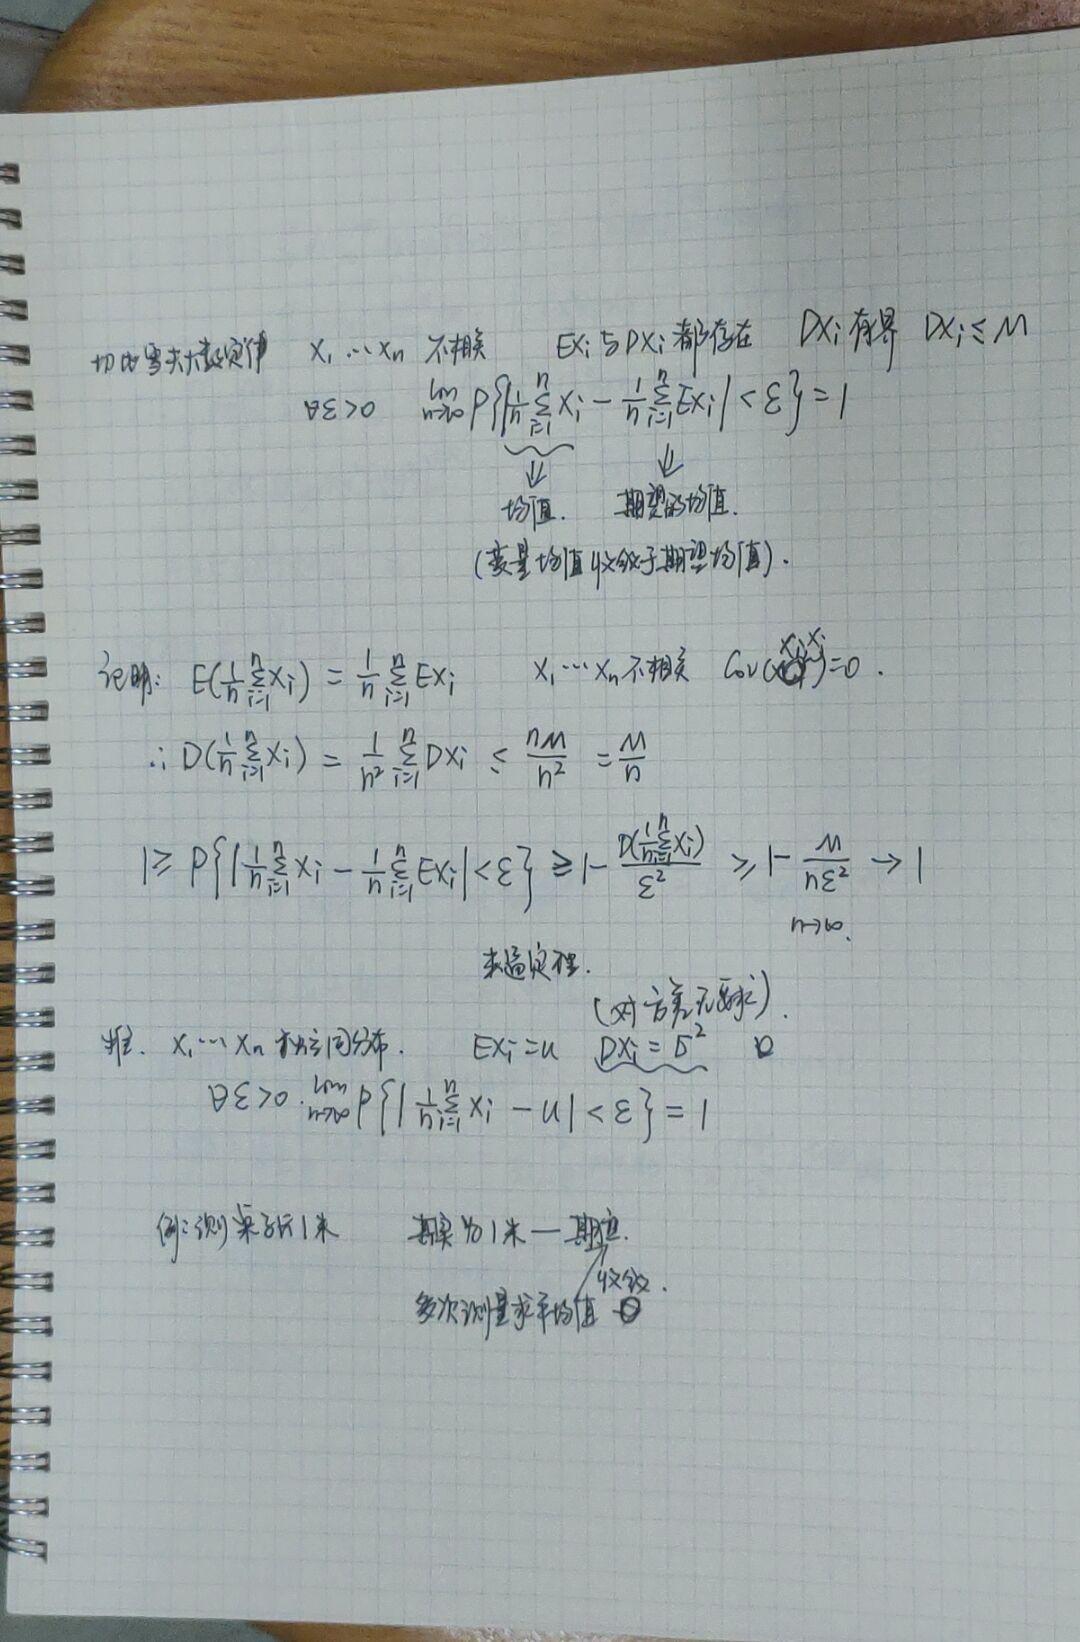 切比雪夫大数定律 X₁ ⋯ Xₙ 不相关 EXᵢ与DXᵢ都存在 DXᵢ有界 DXᵢ ≤ M
∀ε>0 lim n→∞ P{|1/n Σᵢ₌₁ⁿ Xᵢ − 1/n Σᵢ₌₁ⁿ EXᵢ| < ε} = 1
⇓ ⇓
均值. 期望的均值.
(变量均值收敛于期望均值).
证明: E(1/n Σᵢ₌₁ⁿ Xᵢ) = 1/n Σᵢ₌₁ⁿ EXᵢ X₁ ⋯ Xₙ 不相关 Cov(XᵢXⱼ)=0.
∴ D(1/n Σᵢ₌₁ⁿ Xᵢ) = 1/n² Σᵢ₌₁ⁿ DXᵢ ≤ nM/n² = M/n
1 ≥ P{|1/n Σᵢ₌₁ⁿ Xᵢ − 1/n Σᵢ₌₁ⁿ EXᵢ| < ε} ≥ 1 − D(1/n Σᵢ₌₁ⁿ Xᵢ)/ε² ≥ 1 − M/nε² → 1
n→∞.
夹逼定理.
(对方差无要求).
推. X₁ ⋯ Xₙ 独立同分布. EXᵢ = u DXᵢ = σ²
∀ε>0. lim n→∞ P{|1/n Σᵢ₌₁ⁿ Xᵢ − u| < ε} = 1
例:测桌子长1米 真为1米 — 期望.
收敛.
多次测量求平均值